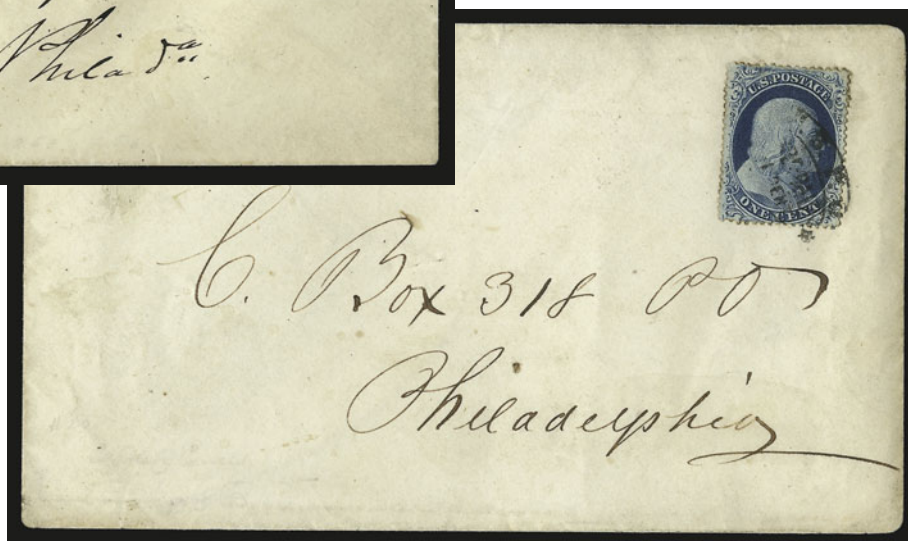 Phila da
U.S. POSTAGE
ONE CENT
C. Box 318 PO
Philadelphia